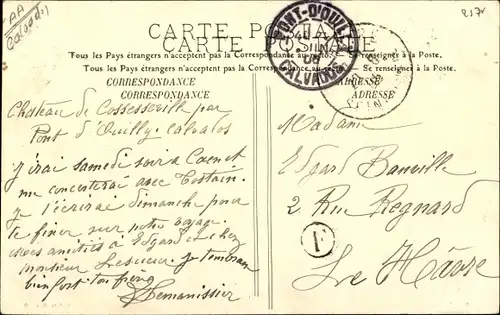 AA
Calvados
217
CARTE POSTALE
CARTE POSTALE
Tous les Pays étrangers n'acceptent pas la Correspondance au Se renseigner à la Poste.
Tous les Pays étrangers n'acceptent pas la Correspondance au Se renseigner à la Poste.
CORRESPONDANCE
CORRESPONDANCE
ADRESSE
ADRESSE
PONT-D'OUILLY
CALVADOS
Chateau de Cossesseville par
Pont d'Ouilly. Calvados
J'irai samedi soir à Caen et
me concerterai avec Tostain.
Je t'écrirai dimanche pour
te fixer sur notre voyage.
Mes amitiés à Edgard et chez
Monsieur Lesueur. Je t'embrasse
bien fort ton frère
Lemanissier
Madame
Edgard Banville
2 Rue Regnard
F
Le Hâvre